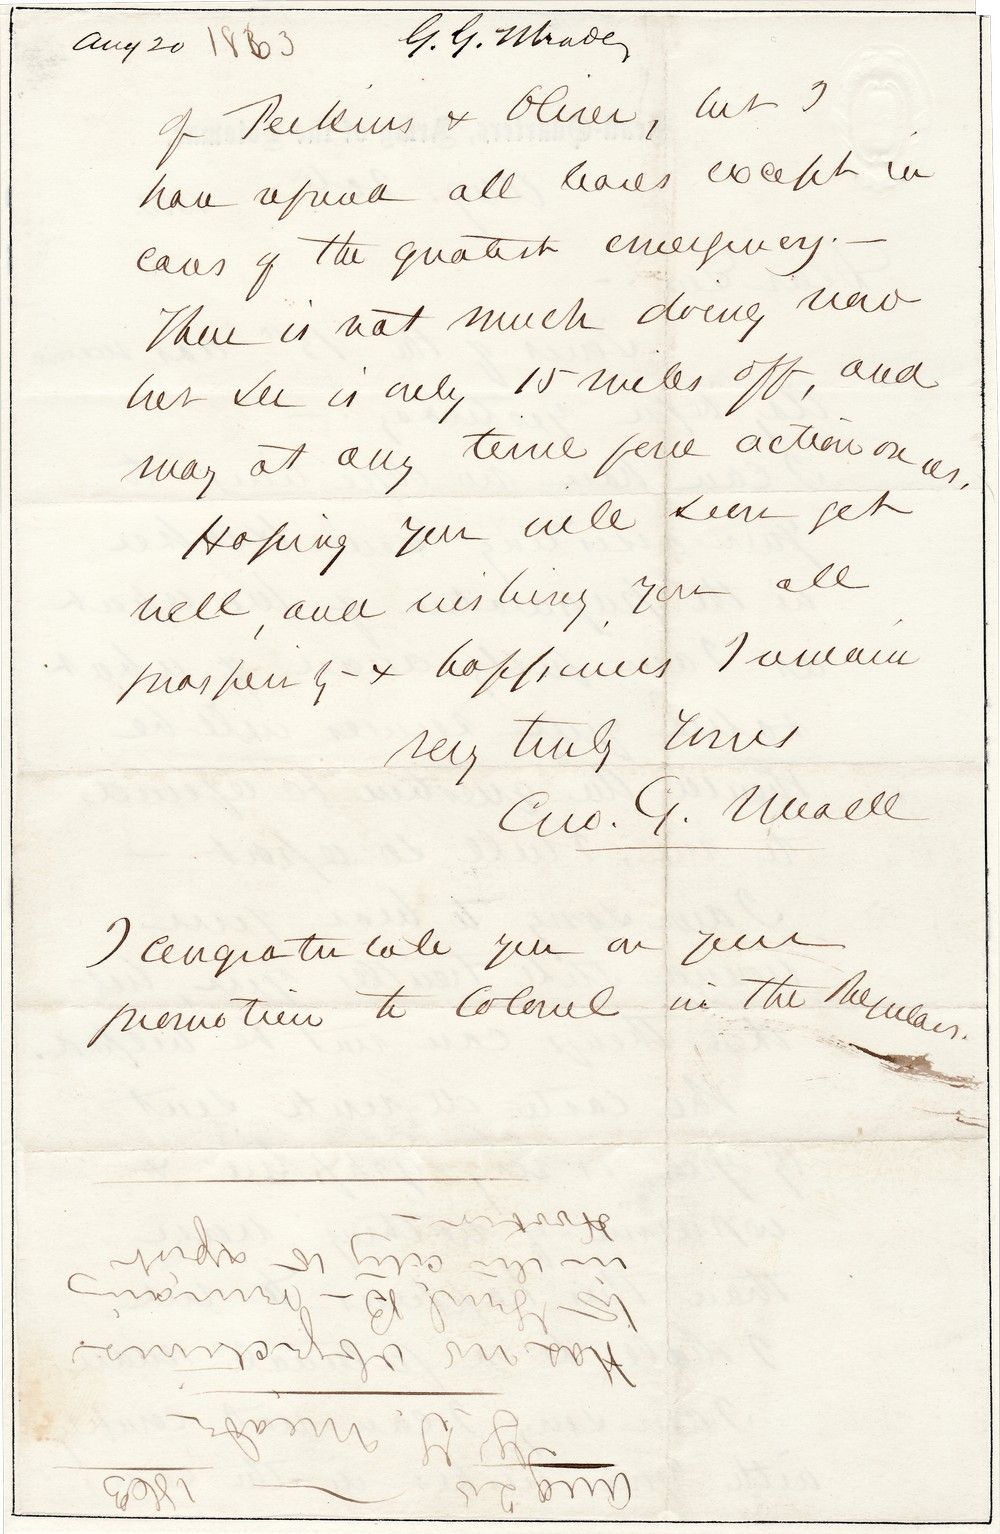 Aug 20 1863 G. G. Meade
of Perkins & Oliver, but I
have refused all leaves except in
cases of the greatest emergency. —
There is not much doing now
but Lee is only 15 miles off, and
may at any time force action on us.
Hoping you will soon get
well, and wishing you all
prosperity & happiness I remain
very truly Yours
Geo. G. Meade
I congratulate you on your
promotion to Colonel in the Regulars.
Aug 20 1863
G. G. Meade
Has no objections
to Genl. B— remaining
in the city to assist